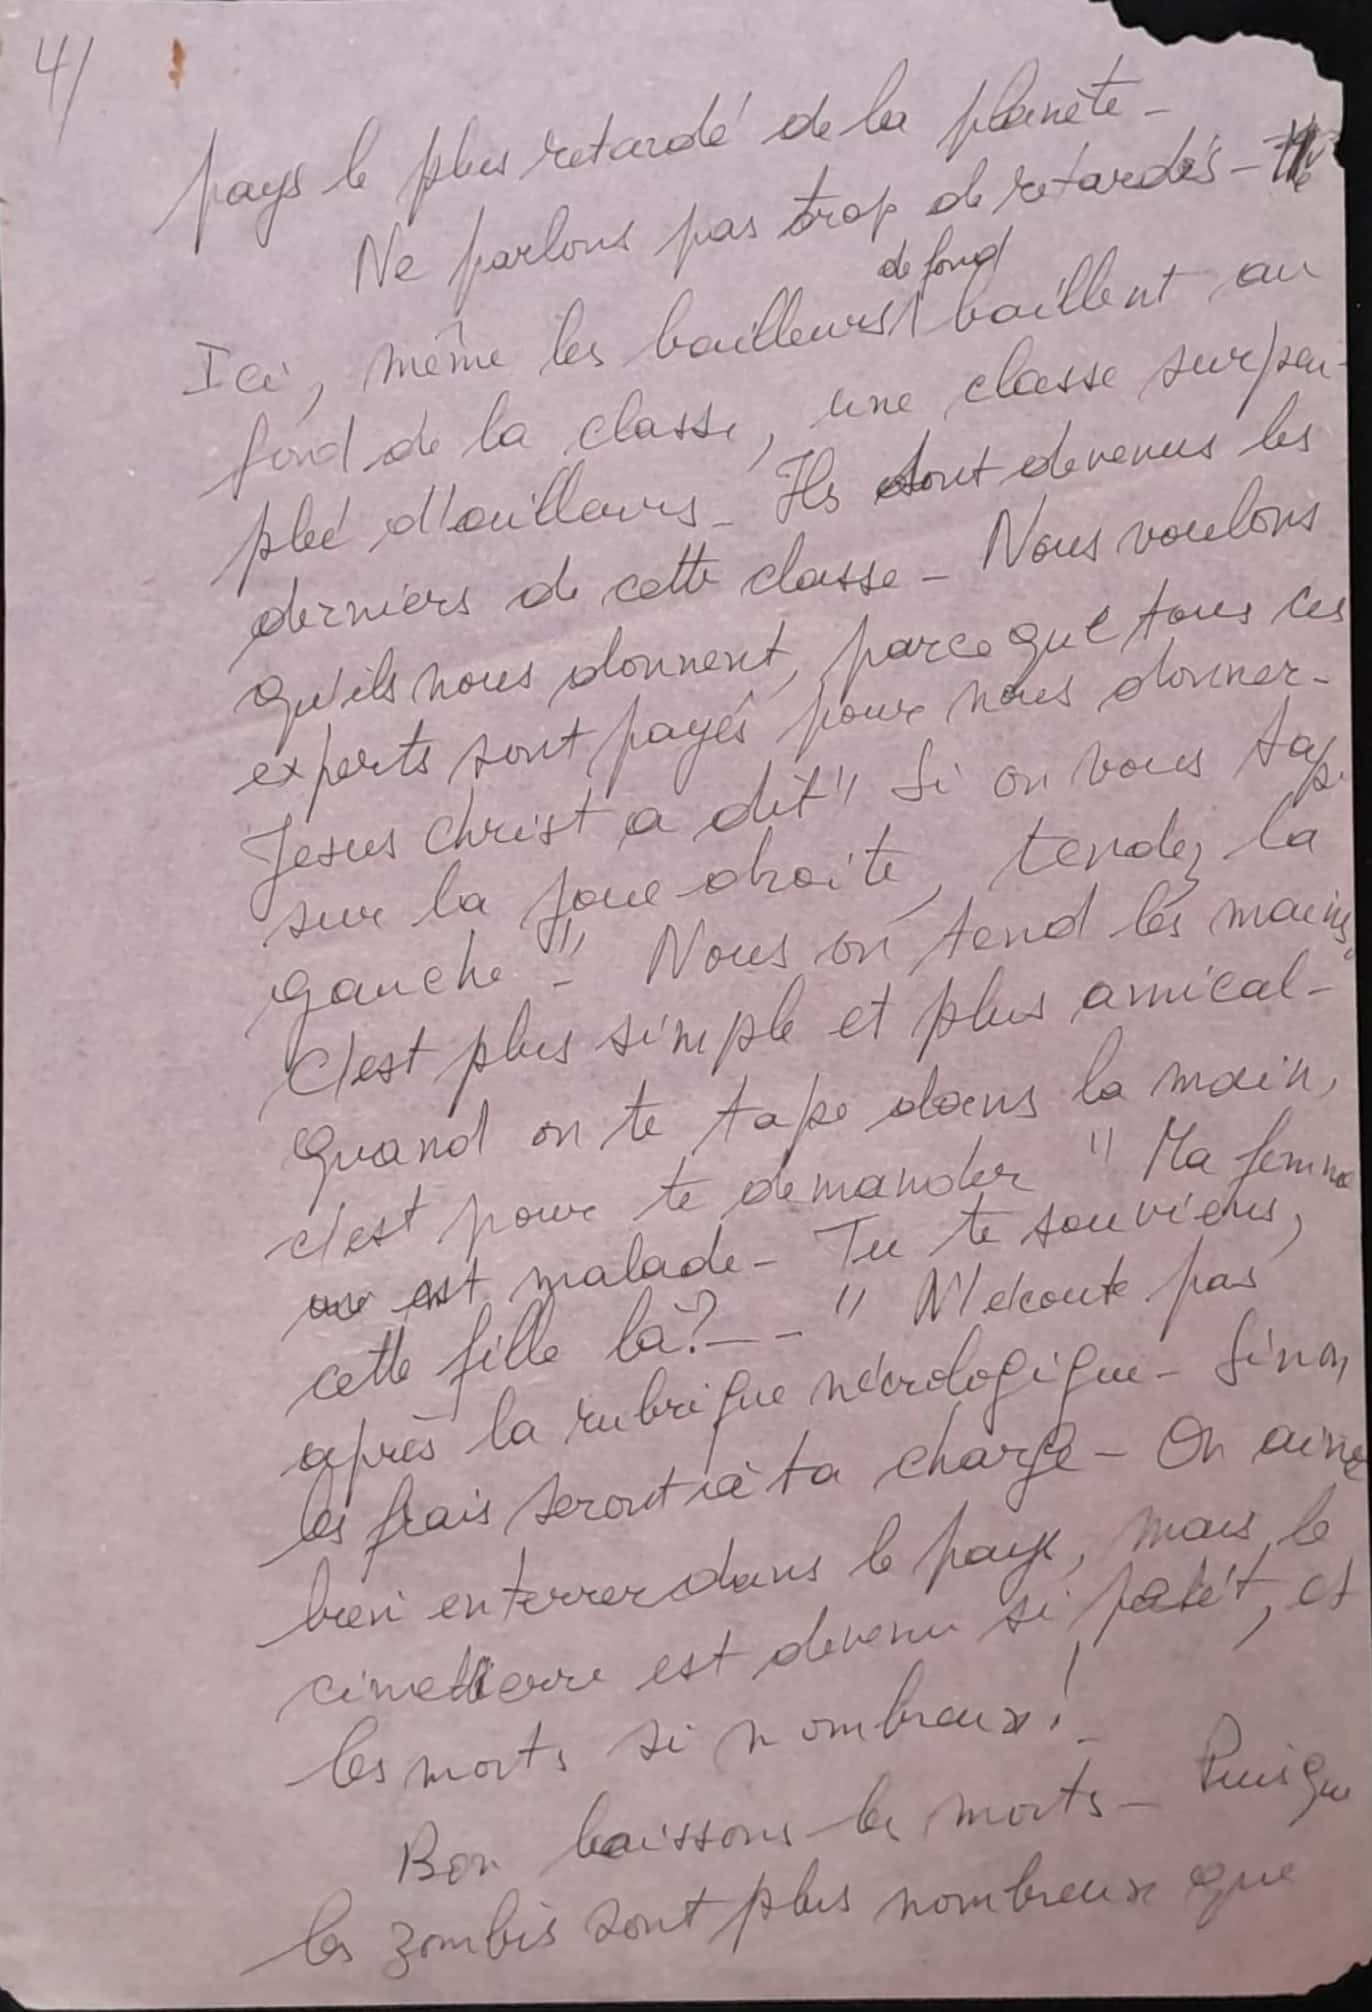 4/
pays le plus retardé de la planète -
Ne parlons pas trop de retardés -
de fond
Ici, même les bailleurs baillent au
fond de la classe, une classe surpeu-
plée d'ailleurs - Ils sont devenus les
derniers de cette classe - Nous voulons
qu'ils nous donnent, parce que tous ces
experts sont payés pour nous donner -
Jesus Christ a dit " Si on vous tape
sur la joue droite, tendez la
gauche " - Nous on tend les mains,
C'est plus simple et plus amical -
Quand on te tape dans la main,
c'est pour te demander " Ma femme
est malade - Tu te souviens,
cette fille là ? - - " N'écoute pas
après la rubrique nécrologique - Sinon
les frais seront à ta charge - On aime
bien enterrer dans le pays, mais le
cimetierre est devenu si petit, et
les morts si nombreux ! -
Bon laissons les morts - Puisque
les zombis sont plus nombreux que